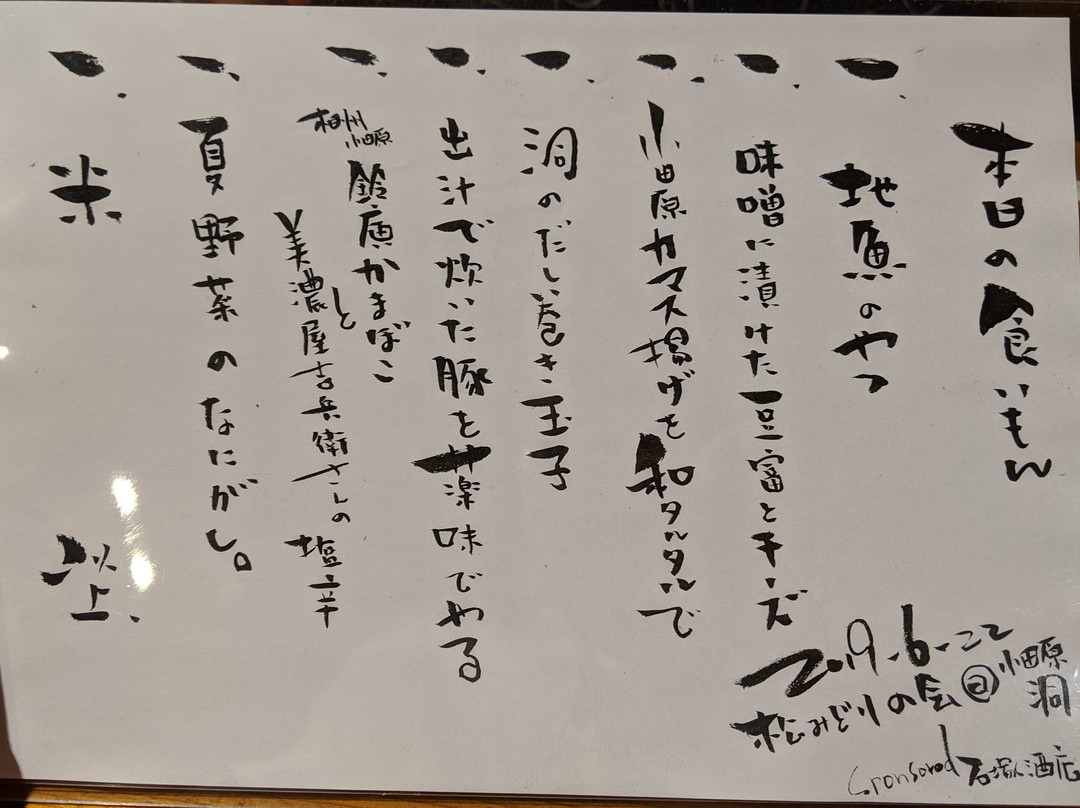 本日の食いもん
一、地魚のやつ
一、味噌に漬けた豆富とチーズ
一、小田原カマス揚げを和タルタルで
一、洞のだし巻き玉子
一、出汁で炊いた豚を薬味でやる
一、相州小田原 鈴廣かまぼこ
と美濃屋吉兵衛さんの塩辛
一、夏野菜のなにがし。
一、米
以上、
2019.6.22
松みどりの会@小田原 洞
Sponsored 石塚酒店